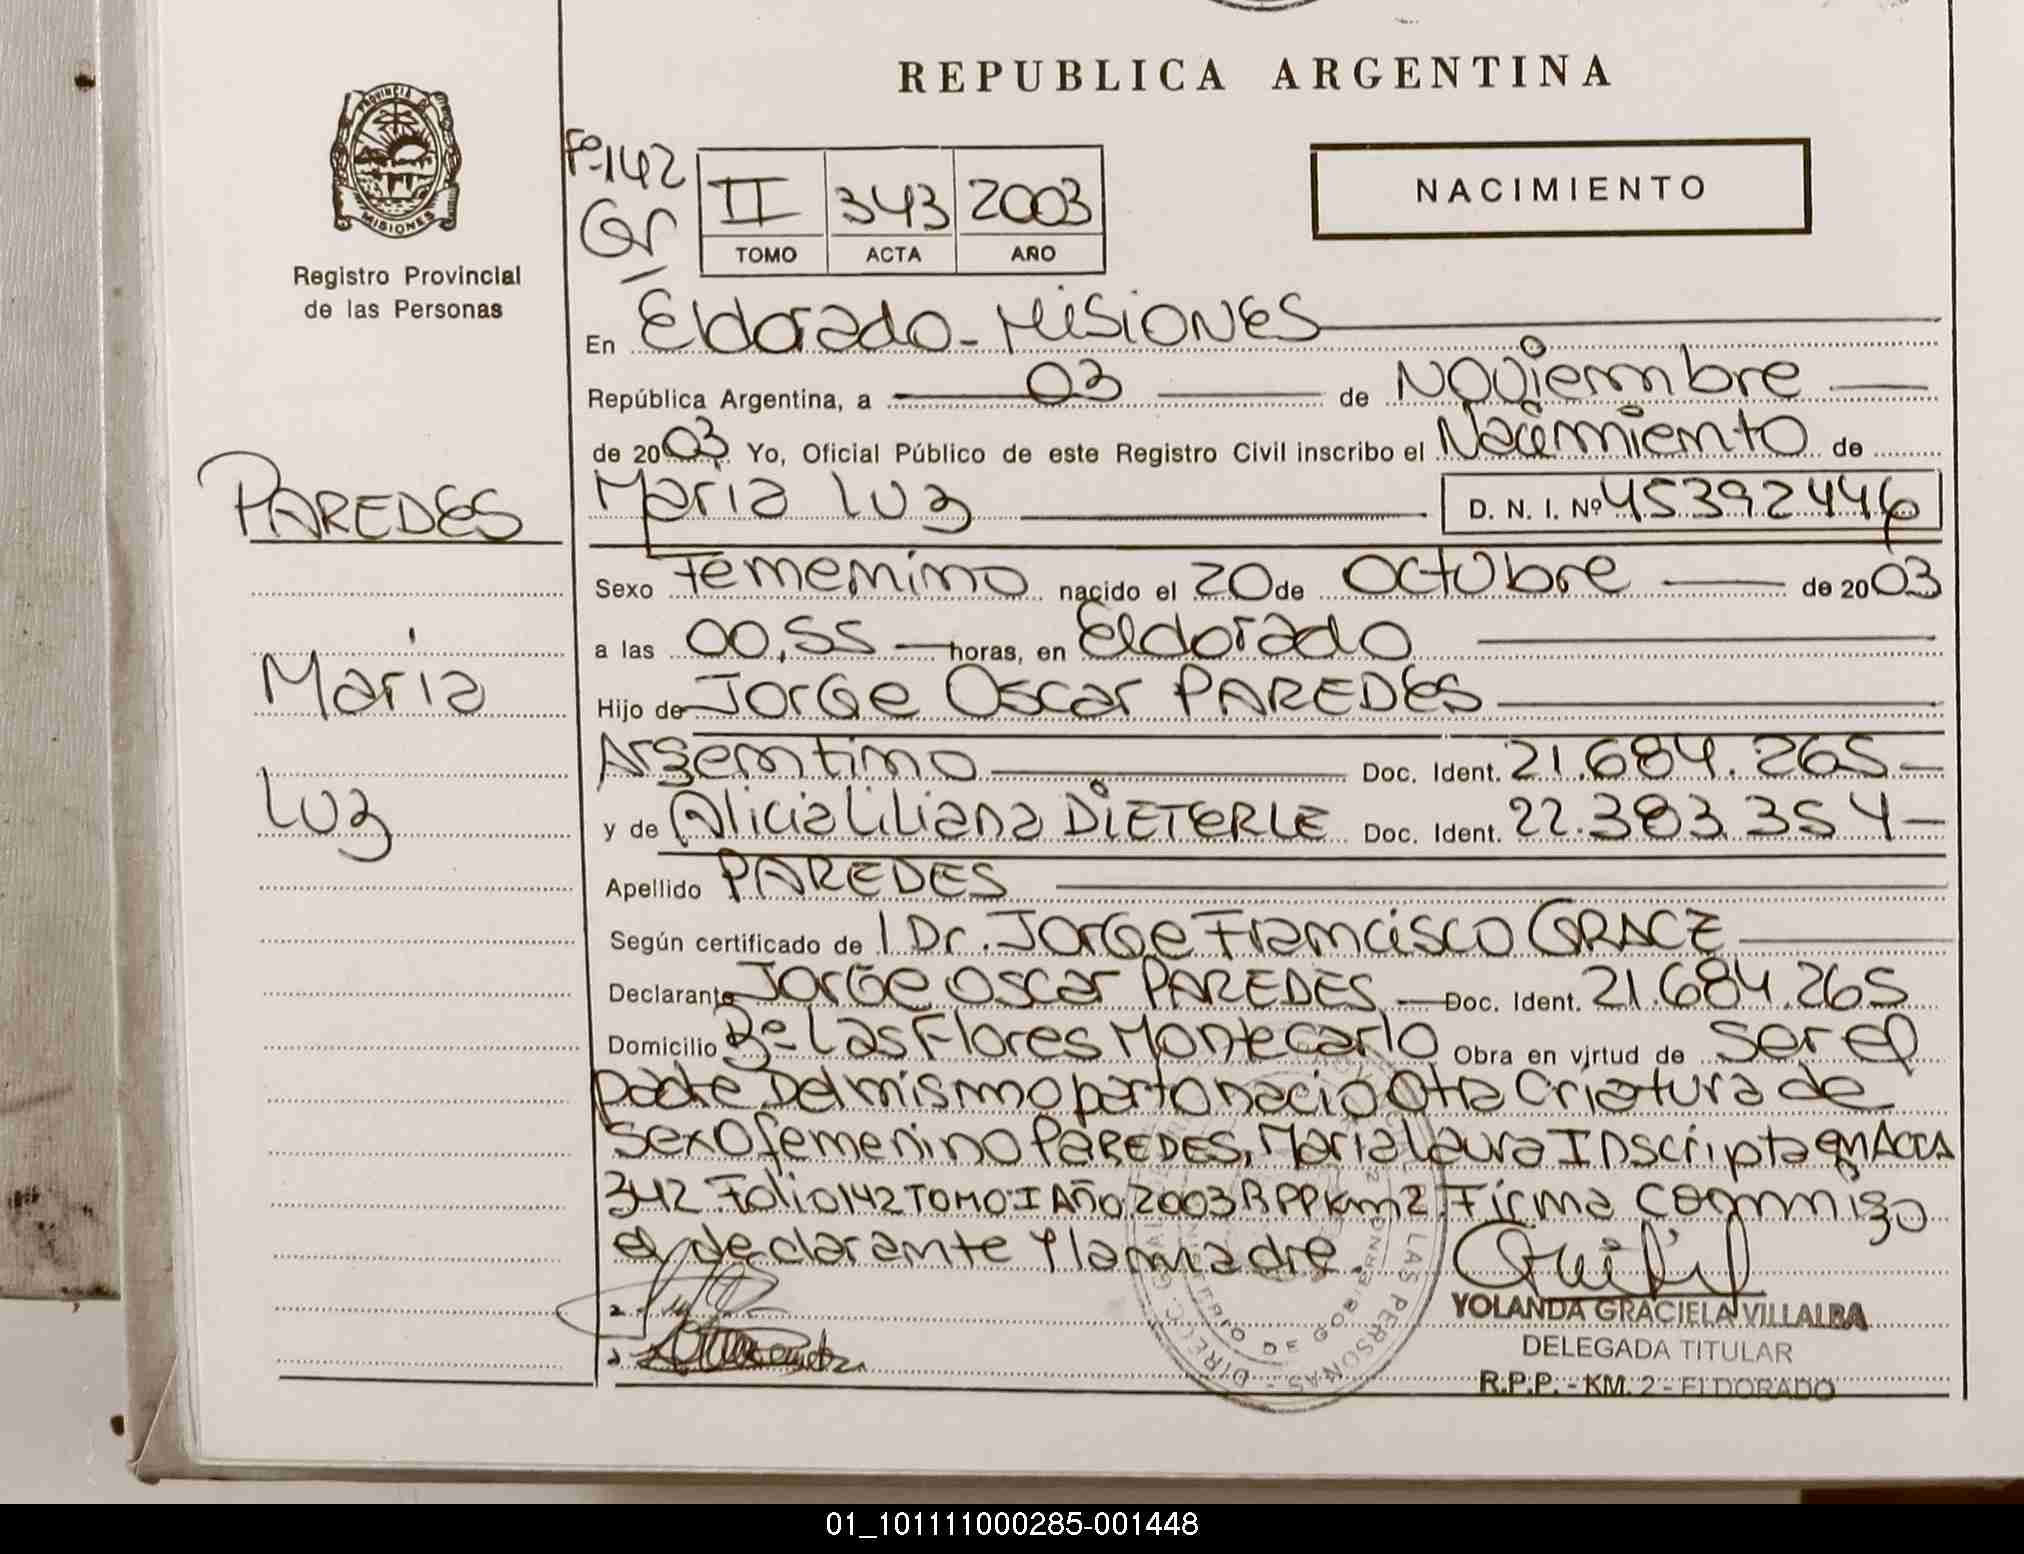 REPUBLICA ARGENTINA
PROVINCIA DE
MISIONES
Registro Provincial
de las Personas
Fº 142
II 343 2003
TOMO ACTA AÑO
NACIMIENTO
En Eldorado - Misiones
República Argentina, a 03 de Noviembre
de 2003. Yo, Oficial Público de este Registro Civil inscribo el Nacimiento de
PAREDES
Maria Luz
D. N. I. Nº 45392446
Sexo Femenino nacido el 20 de Octubre de 2003
a las 00,55 horas, en Eldorado
Maria
Hijo de Jorge Oscar PAREDES
Argentino Doc. Ident. 21.684.265
Luz
y de Alicia Liliana DIETERLE Doc. Ident. 22.383.354
Apellido PAREDES
Según certificado de 1 Dr. Jorge Francisco GRACZ
Declarante Jorge Oscar PAREDES Doc. Ident. 21.684.265
Domicilio Bº Las Flores Montecarlo Obra en virtud de Ser el
padre Del mismo parto nació Otra Criatura de
Sexo femenino PAREDES, Maria Laura Inscripta en Acta
342 Folio 142 TOMO I Año 2003 RPP Km 2. Firma conmigo
el declarante y la madre.
YOLANDA GRACIELA VILLALBA
DELEGADA TITULAR
R.P.P. - KM. 2 - ELDORADO
01_101111000285-001448